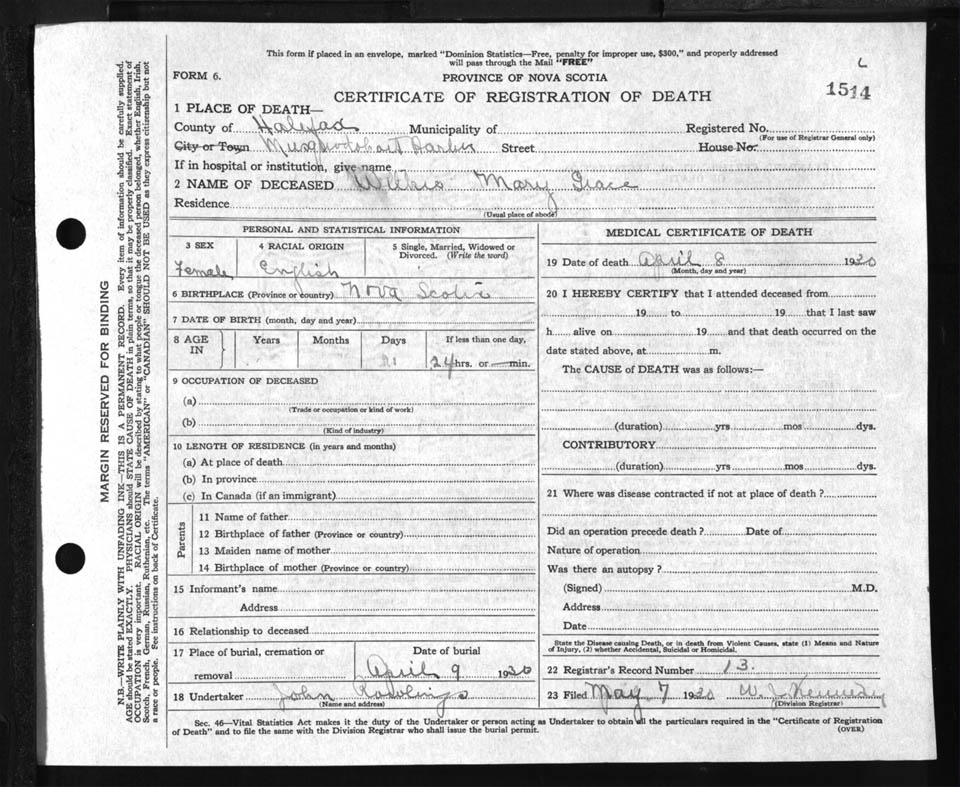 This form if placed in an envelope, marked "Dominion Statistics—Free, penalty for improper use, $300," and properly addressed
will pass through the Mail "FREE"
FORM 6.
PROVINCE OF NOVA SCOTIA
L
1514
CERTIFICATE OF REGISTRATION OF DEATH
1 PLACE OF DEATH—
County of Halifax Municipality of Registered No.
(For use of Registrar General only)
City or Town Musquodoboit Harbor Street House No.
If in hospital or institution, give name
2 NAME OF DECEASED Mary Grace
Residence
(Usual place of abode)
PERSONAL AND STATISTICAL INFORMATION
3 SEX 4 RACIAL ORIGIN 5 Single, Married, Widowed or
Divorced. (Write the word)
Female English
6 BIRTHPLACE (Province or country) Nova Scotia
7 DATE OF BIRTH (month, day and year)
8 AGE IN Years Months Days If less than one day,
24 hrs. or — min.
9 OCCUPATION OF DECEASED
(a)
(Trade or occupation or kind of work)
(b)
(Kind of industry)
10 LENGTH OF RESIDENCE (in years and months)
(a) At place of death
(b) In province
(c) In Canada (if an immigrant)
Parents
11 Name of father
12 Birthplace of father (Province or country)
13 Maiden name of mother
14 Birthplace of mother (Province or country)
15 Informant's name
Address
16 Relationship to deceased
17 Place of burial, cremation or
removal
Date of burial
April 9 1930
18 Undertaker John Rawlings
(Name and address)
MEDICAL CERTIFICATE OF DEATH
19 Date of death April 8 1930
(Month, day and year)
20 I HEREBY CERTIFY that I attended deceased from
19 to 19 that I last saw
h alive on 19 and that death occurred on the
date stated above, at m.
The CAUSE of DEATH was as follows:—
(duration) yrs mos dys.
CONTRIBUTORY
(duration) yrs mos dys.
21 Where was disease contracted if not at place of death ?
Did an operation precede death ? Date of
Nature of operation
Was there an autopsy ?
(Signed) M.D.
Address
Date
State the Disease causing Death, or in death from Violent Causes, state (1) Means and Nature
of Injury, (2) whether Accidental, Suicidal or Homicidal.
22 Registrar's Record Number 13.
23 Filed May 7 1930 W. J. Kennedy
(Division Registrar)
Sec. 46—Vital Statistics Act makes it the duty of the Undertaker or person acting as Undertaker to obtain all the particulars required in the "Certificate of Registration
of Death" and to file the same with the Division Registrar who shall issue the burial permit.
(OVER)
MARGIN RESERVED FOR BINDING
N.B.—WRITE PLAINLY WITH UNFADING INK—THIS IS A PERMANENT RECORD. Every item of information should be carefully supplied.
AGE should be stated EXACTLY. PHYSICIANS should STATE CAUSE OF DEATH in plain terms, so that it may be properly classified. Exact statement of
OCCUPATION is very important. RACIAL ORIGIN will be described by stating to what people or tongue the deceased person belonged, whether English, Irish,
Scotch, French, German, Russian, Ruthenian, etc. The terms "AMERICAN" or "CANADIAN" SHOULD NOT BE USED as they express citizenship but not
a race or people. See instructions on back of Certificate.